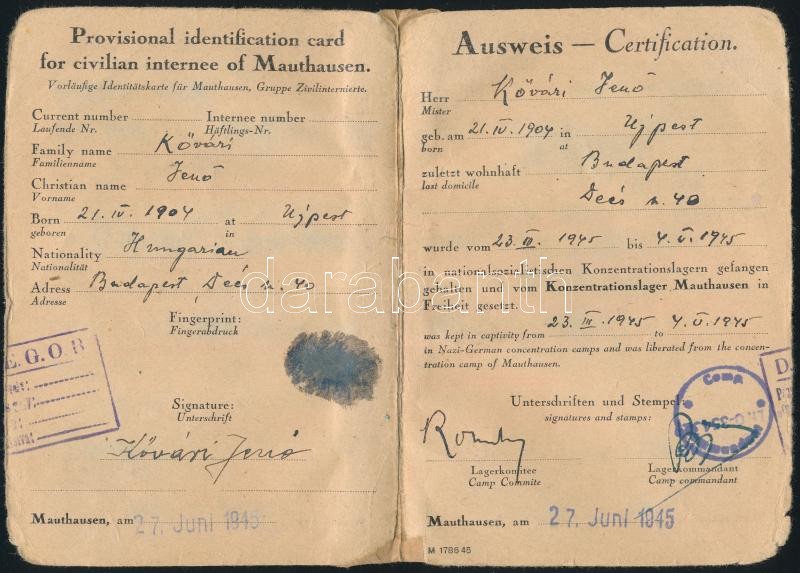 Provisional identification card
for civilian internee of Mauthausen.
Vorläufige Identitätskarte für Mauthausen, Gruppe Zivilinternierte.
Current number
Internee number
Laufende Nr.
Häftlings-Nr.
Family name Kővári
Familienname
Christian name Jenő
Vorname
Born 21. IV. 1904 at Ujpest
geboren in
Nationality Hungarian
Nationalität
Adress Budapest Deés u. 40
Adresse
Fingerprint:
Fingerabdruck
E.G.O.B
Signature:
Unterschrift
Kővári Jenő
Mauthausen, am 27. Juni 1945
Ausweis — Certification.
Herr Kővári Jenő
Mister
geb. am 21. IV. 1904 in Ujpest
born at
zuletzt wohnhaft Budapest
last domicile
Deés u. 40
wurde vom 23. III. 1945 bis 4. V. 1945
in nationalsozialistischen Konzentrationslagern gefangen
gehalten und vom Konzentrationslager Mauthausen in
Freiheit gesetzt.
23. III. 1945 4. V. 1945
was kept in captivity from to
in Nazi-German concentration camps and was liberated from the concen-
tration camp of Mauthausen.
Unterschriften und Stempel:
signatures and stamps:
Camp
D.
Lagerkomitee
Camp Commite
Lagerkommandant
Camp commandant
Mauthausen, am 27. Juni 1945
M 1786 45
darabanth